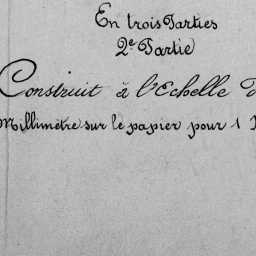 En trois Parties
2e Partie
Construit à l'Echelle
Millimètre sur le papier pour 1